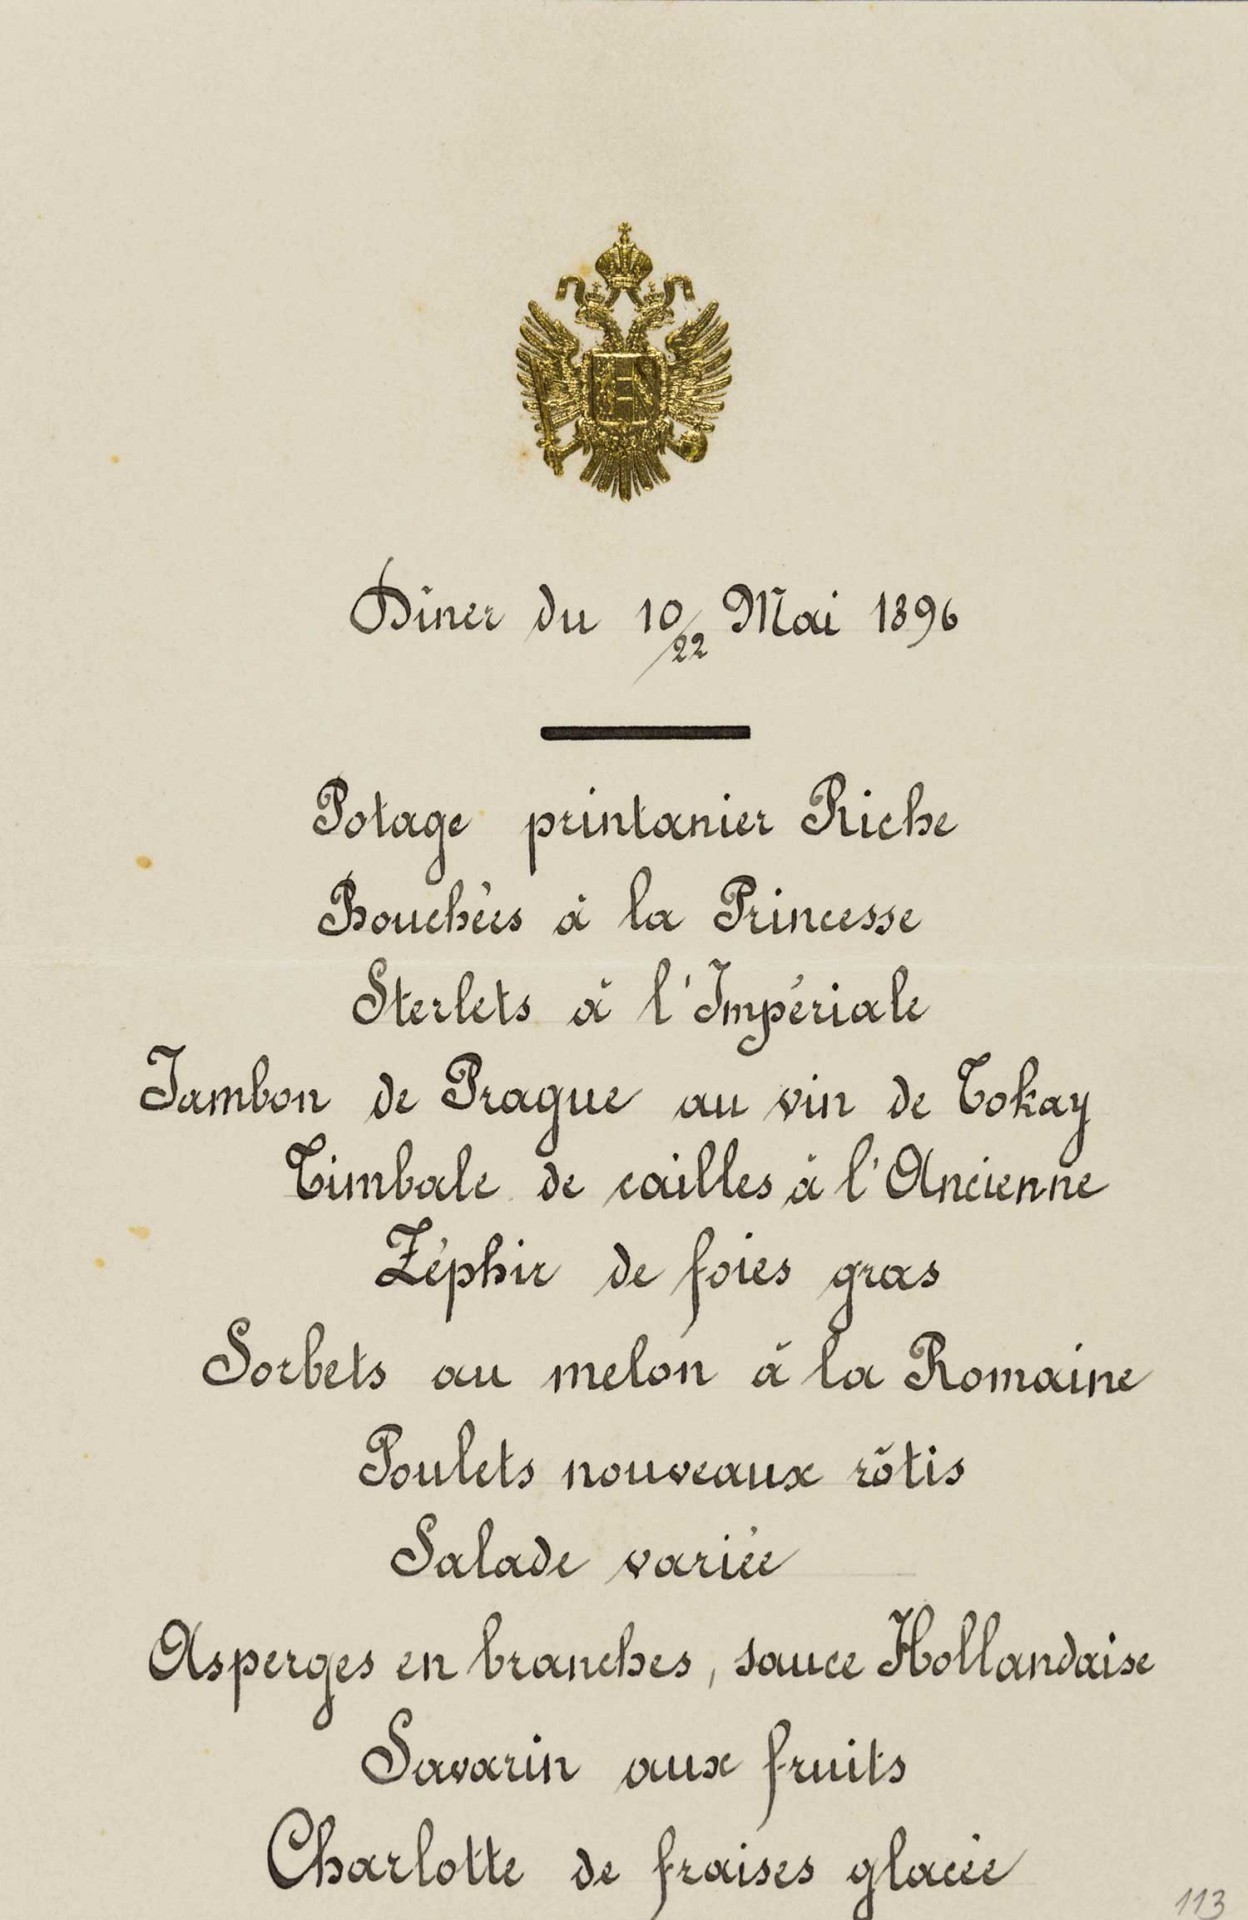 Dîner du 10/22 Mai 1896
Potage printanier Riche
Bouchées à la Princesse
Sterlets à l'Impériale
Jambon de Prague au vin de Tokay
Timbale de cailles à l'Ancienne
Zéphir de foies gras
Sorbets au melon à la Romaine
Poulets nouveaux rôtis
Salade variée
Asperges en branches, sauce Hollandaise
Savarin aux fruits
Charlotte de fraises glacée
113